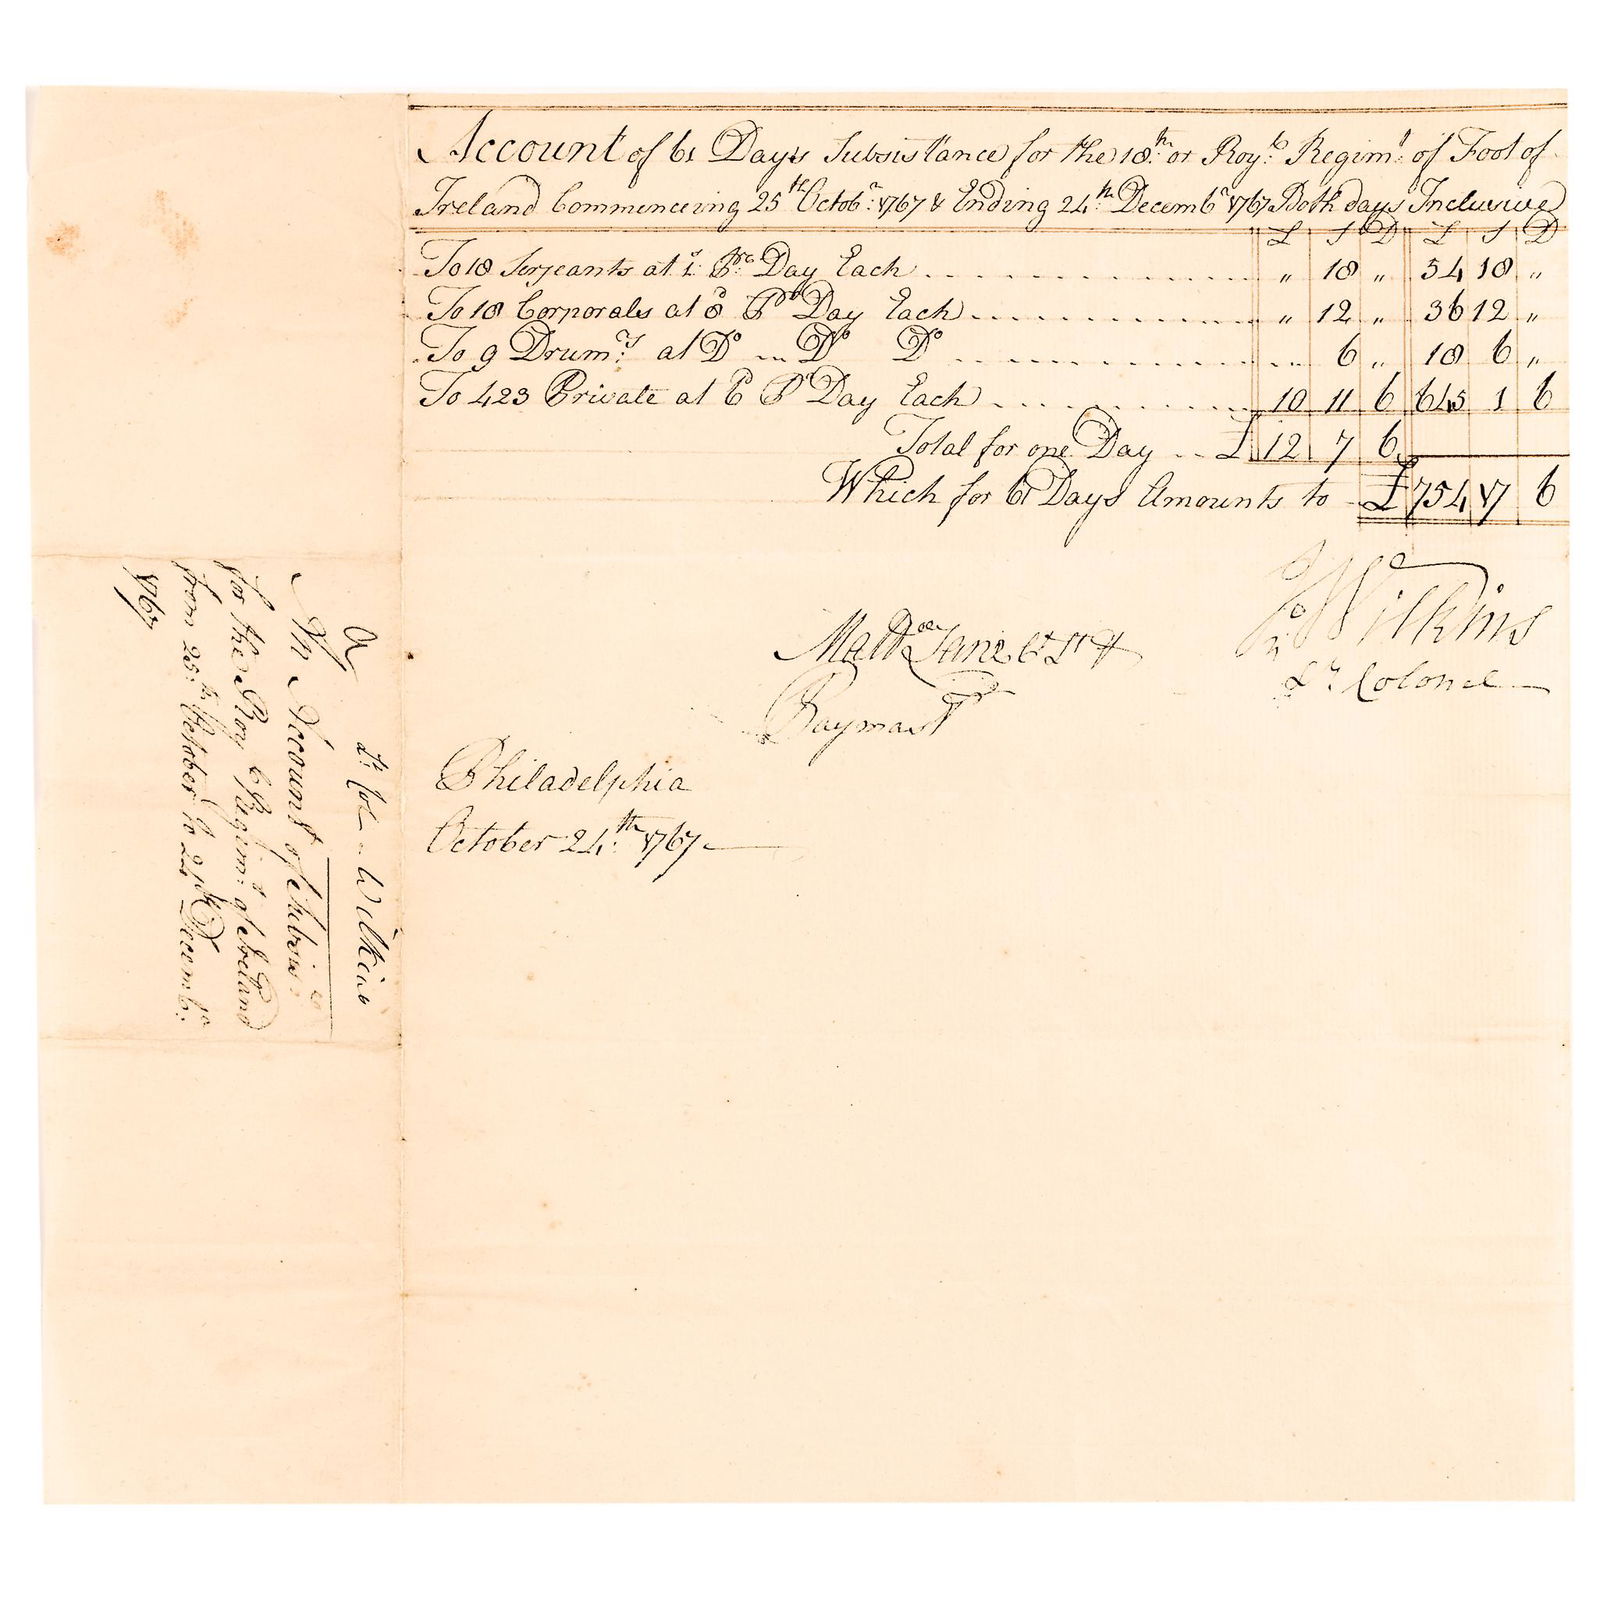 Account of 61 Days Subsistance for the 18th or Royl Regimt of Foot of
Ireland Commenceing 25th Octobr: 1767 & Ending 24th Decembr 1767 Both days Inclusive
£ S D £ S D
To 18 Serjeants at 1s Pr Day Each " 18 " 54 18 "
To 18 Corporals at 8d Pr Day Each " 12 " 36 12 "
To 9 Drumrs at Do Do Do 6 " 18 6 "
To 423 Private at 6d Pr Day Each 10 11 6 645 1 6
Total for one Day £ 12 7 6
Which for 61 Days Amounts to £ 754 17 6
Jno Wilkins
Lt Colonel
Lane Lt &
Paymastr
Philadelphia
October 24th 1767
Lt Col Wilkins
An Account of Subsisce
for the Roy l Regimt of Ireland
from 25th October to 24th Decembr
1767